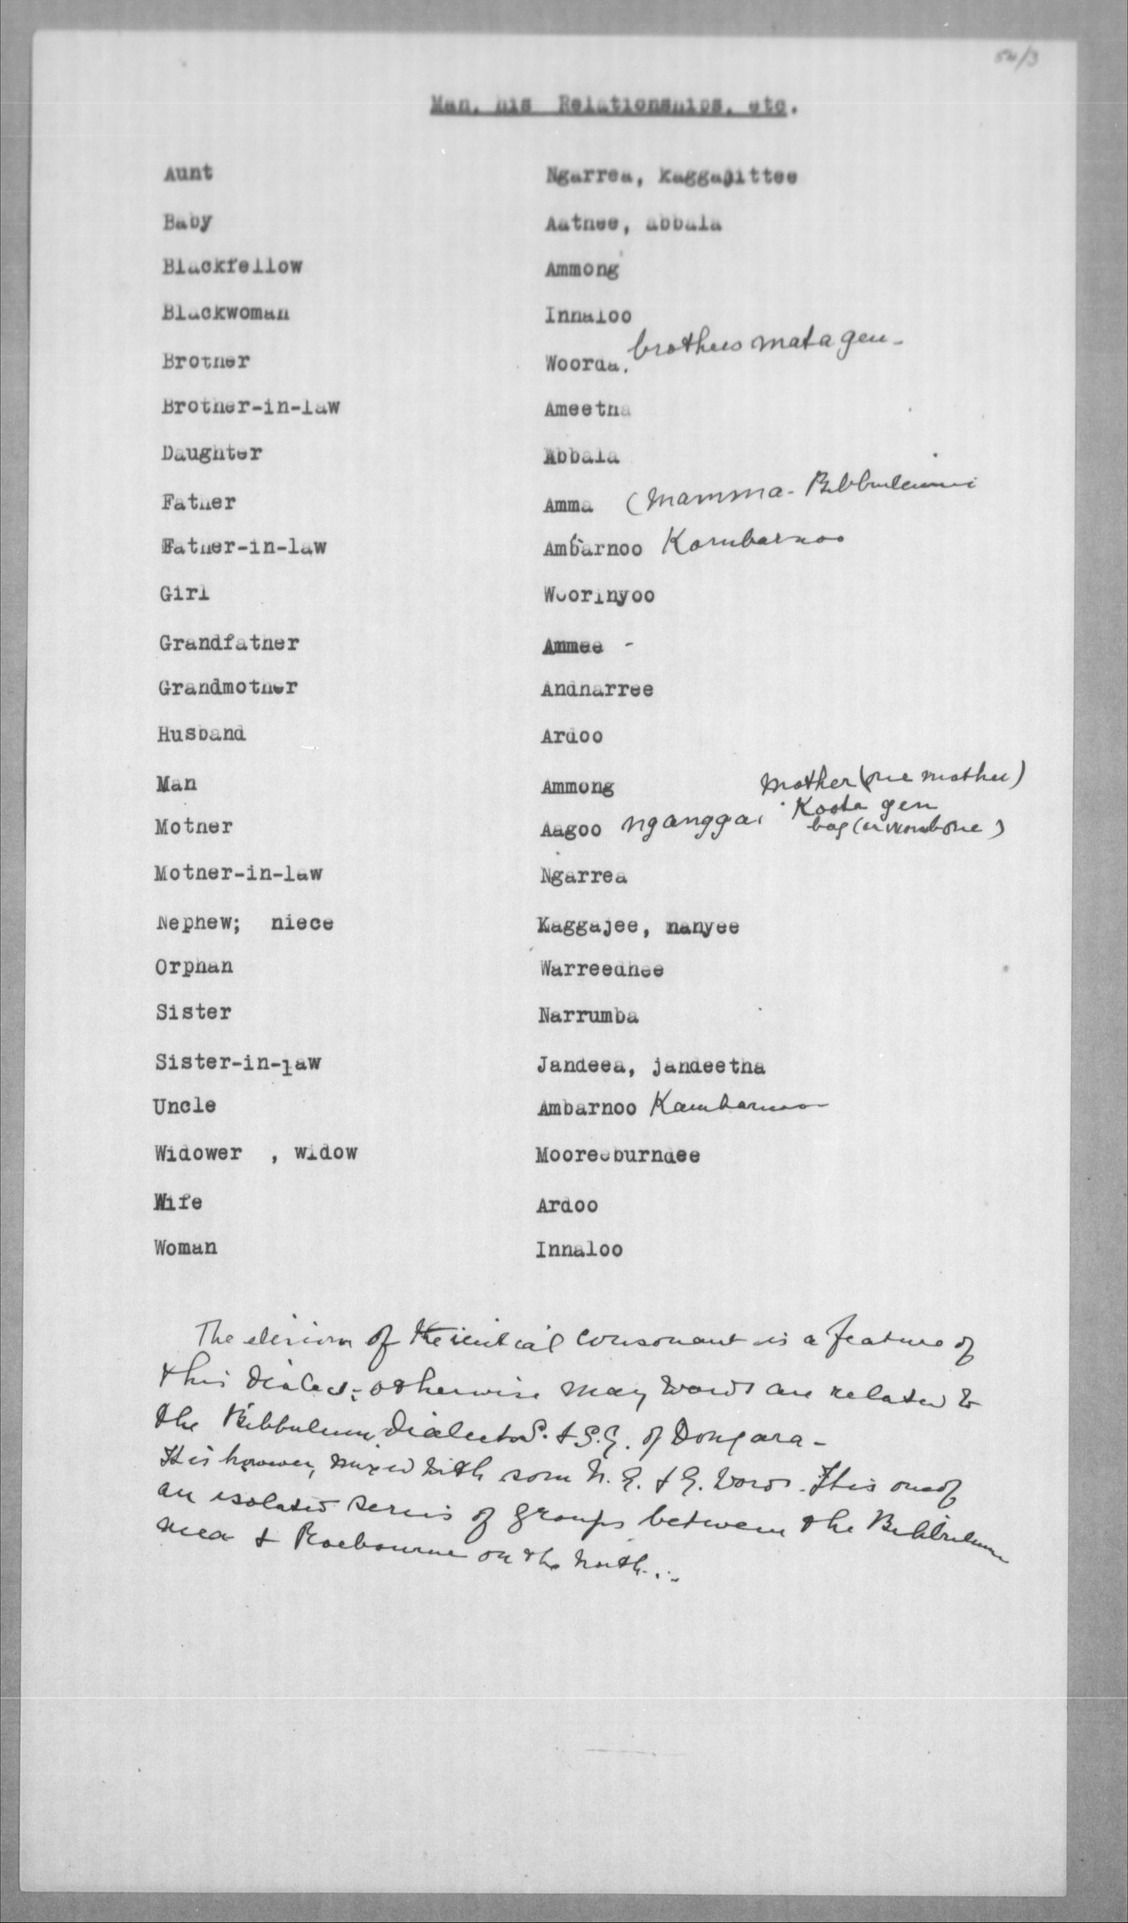 54/3
Man, his Relationships, etc.
Aunt Ngarrea, kaggajittee
Baby Aathee, abbala
Blackfellow Ammong
Blackwoman Innaloo
Brother Woorda, brothers mata gen-
Brother-in-law Ameetha
Daughter Abbala
Father Amma (mamma - Bibbulmun
Father-in-law Ambarnoo Kambarnoo
Girl Woorinyoo
Grandfather Ammee -
Grandmother Andharree
Husband Ardoo
Man Ammong mother (one mother)
Mother Aagoo nganggai Koota gen
bag (or womb one)
Mother-in-law Ngarrea
Nephew; niece Kaggajee, nanyee
Orphan Warreedhee
Sister Narrumba
Sister-in-law Jandeea, jandeetha
Uncle Ambarnoo Kambarnoo
Widower , widow Mooreeburndee
Wife Ardoo
Woman Innaloo
The elision of the initial consonant is a feature of
this dialect; otherwise many words are related to
the Bibbulmun dialects S. & S.E. of Dongara -
It is however, mixed with some N.E. & E. words. It is one of
an isolated series of groups between the Bibbulmun
area & Roebourne on the North.